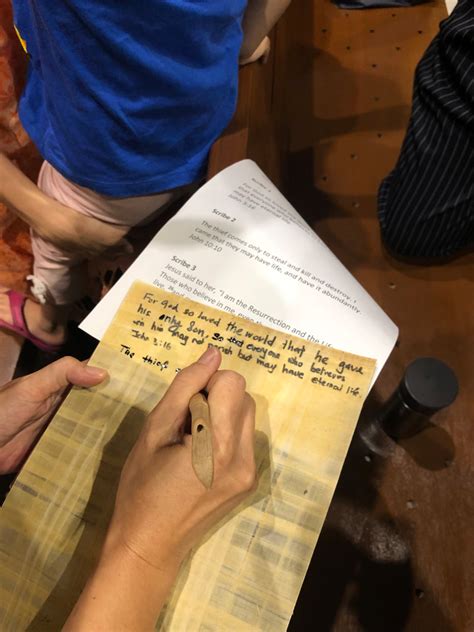 Scribe 1
For God so loved the world
that everyone
may have eternal life.
John 3:16
Scribe 2
The thief comes only to steal and kill and destroy. I
came that they may have life, and have it abundantly.
John 10:10
Scribe 3
Jesus said to her, "I am the Resurrection and the Life
Those who believe in me, even
live,
For God so loved the world that he gave
his only Son, so that everyone who believes
in him may not but may have eternal life.
John 3:16
The thief